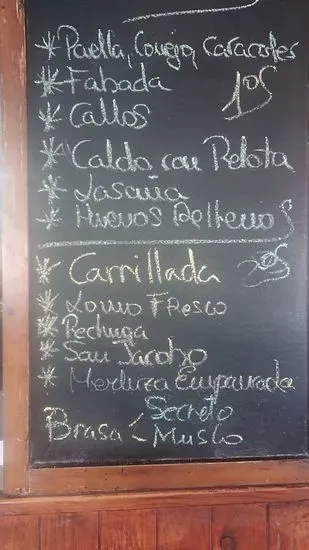 * Paella, Conejo, Caracoles
* Fabada 1os
* Callos
* Caldo con Pelota
* Lasaña
* Huevos Rellenos
* Carrillada 2os
* Lomo Fresco
* Pechuga
* San Jacobo
* Merluza Empanada
Secreto
Brasa < Muslo